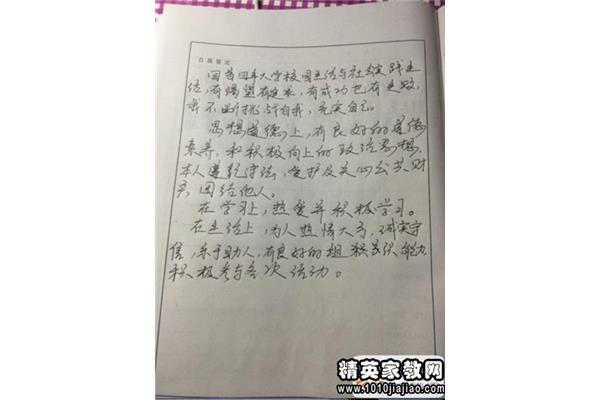 自我鉴定
回首四年大学校园生活与社会实践生
活,有渴望有追求,有成功也有失败,
我不断挑战自我,充实自己。
思想道德上,有良好的道德
素养,和积极向上的政治思想,
本人遵纪守法,爱护及关心公共财
产,团结他人。
在学习上,热爱并积极学习。
在生活上,为人热情大方,诚实守
信,乐于助人,有良好的组织关系能力
积极参与各次活动。
精英家教网
www.1010jiajiao.com